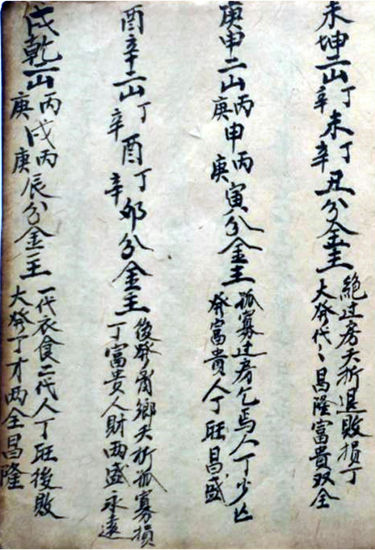 未坤二山丁辛未丁辛丑分金主
絕过房夭折退敗損丁
大發代々昌隆富貴双全
庚申二山丙庚申丙庚寅分金主
孤寡过房乞焉人丁少亡
發富貴人丁旺昌盛
酉辛二山丁辛酉丁辛卯分金主
後發鄉夭折孤寡損
丁富貴人財両盛永遠
戌乾二山丙庚戌丙庚辰分金主
一代衣食二代人丁旺後敗
大發丁才両全昌隆